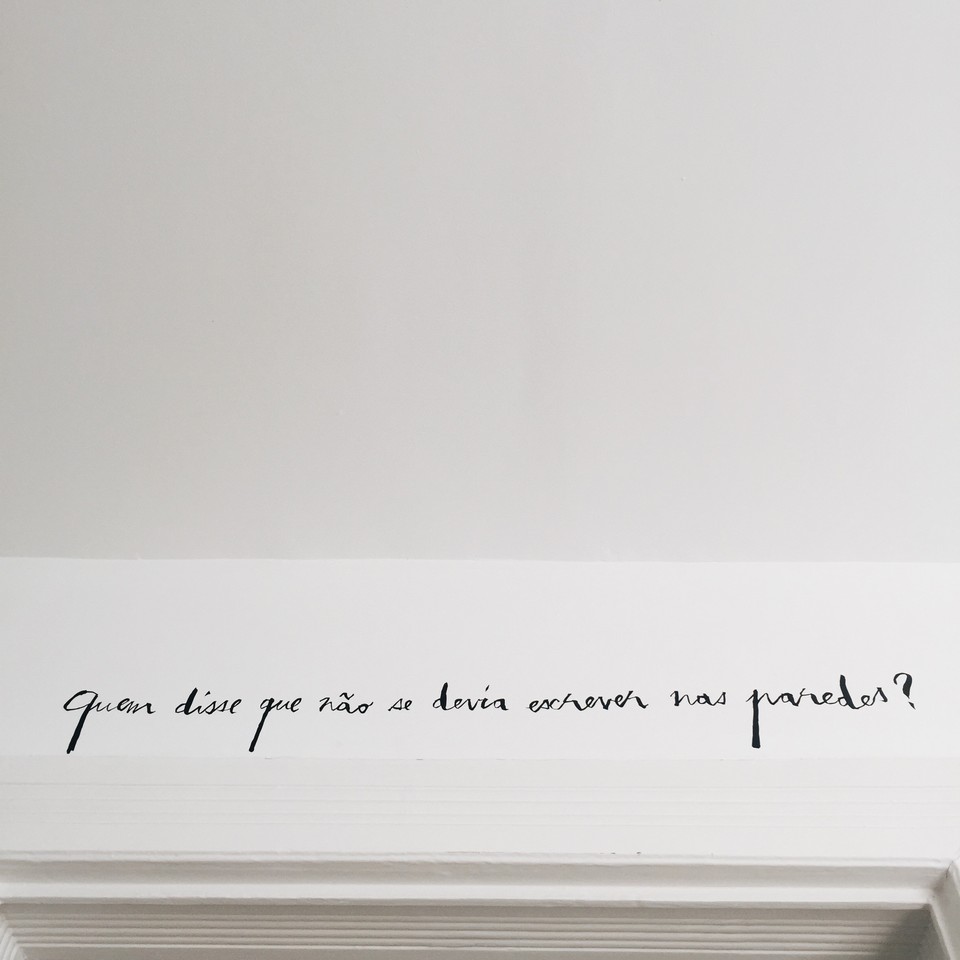 Quem disse que não se devia escrever nas paredes?